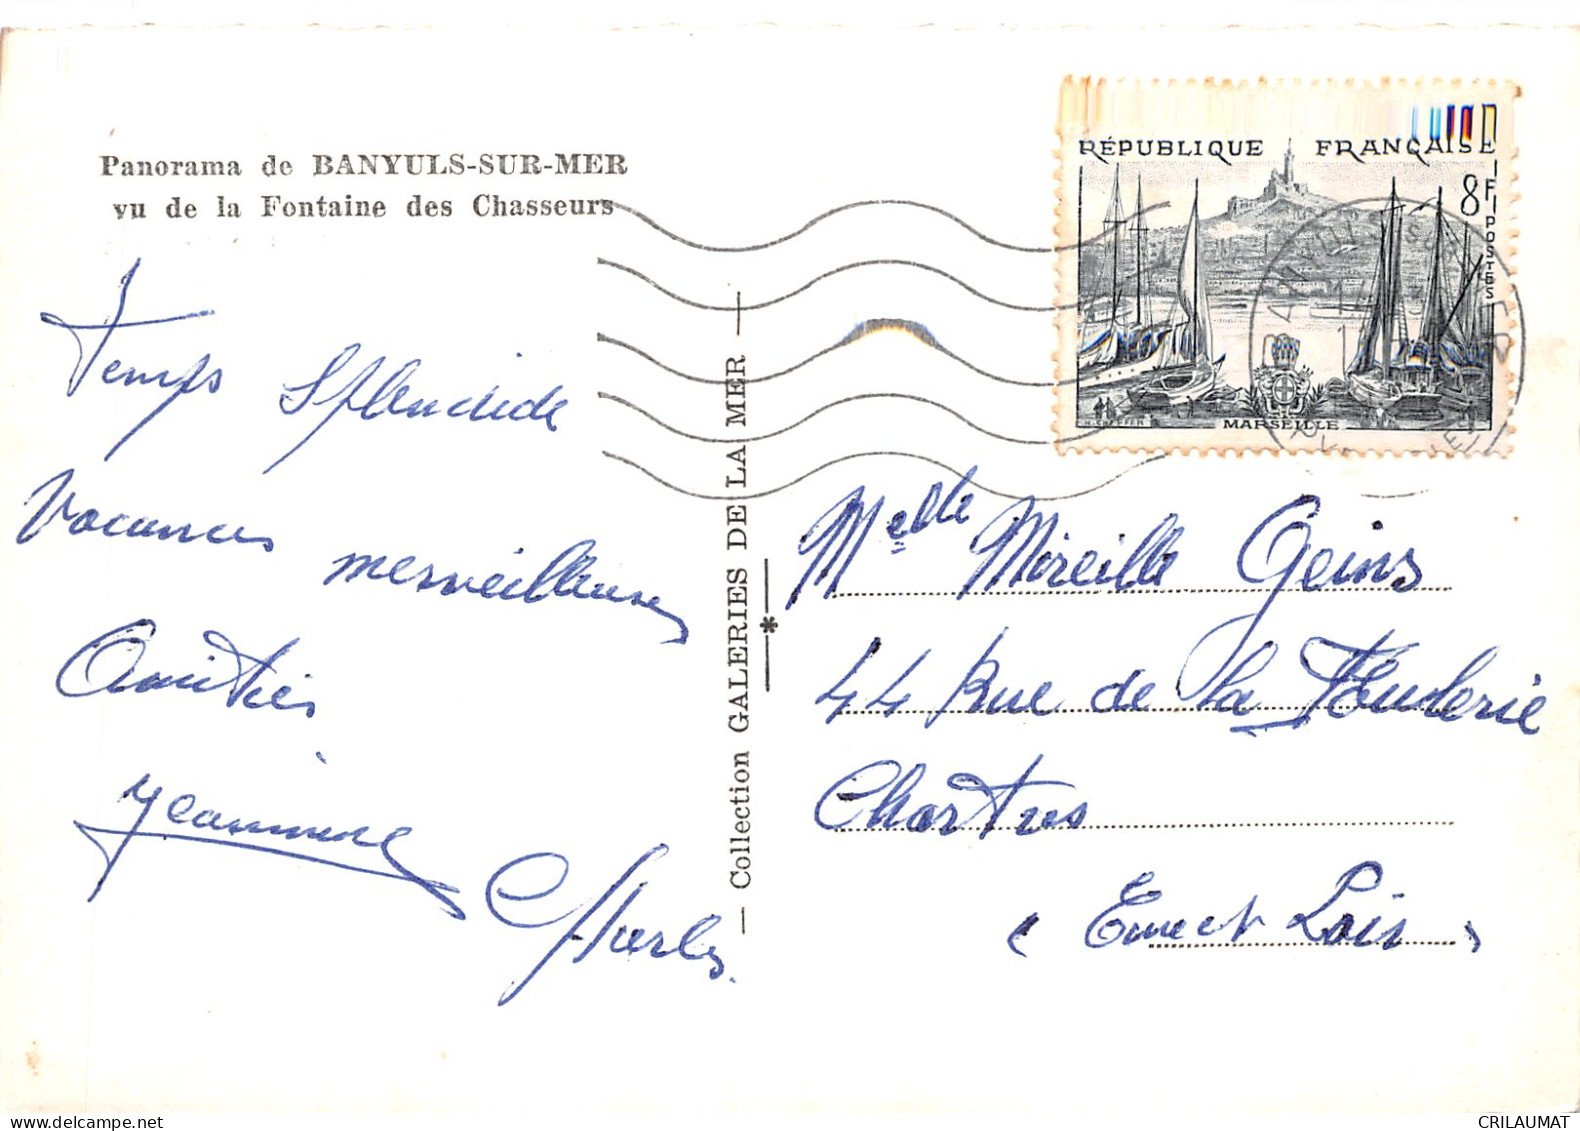 Panorama de BANYULS-SUR-MER
vu de la Fontaine des Chasseurs
RÉPUBLIQUE FRANÇAISE
8F
POSTES
MARSEILLE
Temps splendide
Vacances merveilleuses
Amitiés
Jeannine
Charles.
— Collection GALERIES DE LA MER —
*
Melle Mireille Geins
44 Rue de la
Chartres
(Eure et Loir)
CRILAUMAT